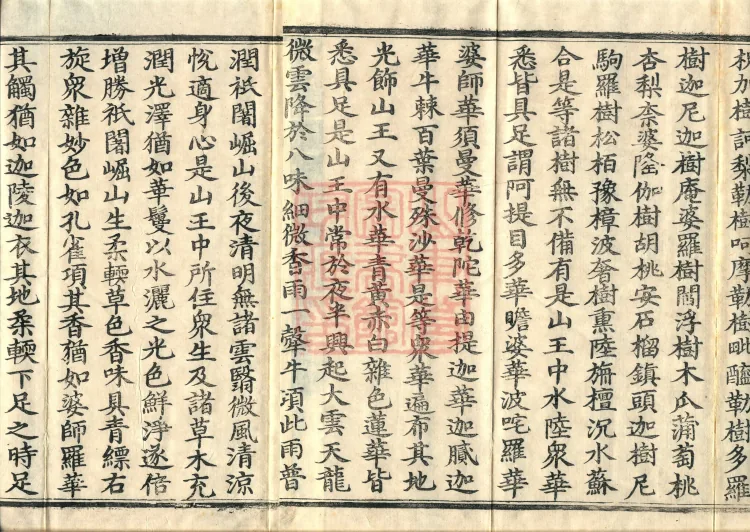 枳加樹訶梨勒樹呵摩勒樹毗醯勒樹多羅
樹迦尼迦樹庵婆羅樹閻浮樹木瓜蒲萄桃
杏梨柰婆隆伽樹胡桃安石榴鎮頭迦樹尼
駒羅樹松柏豫樟波奢樹熏陸栴檀沉水蘇
合是等諸樹無不備有是山王中水陸眾華
悉皆具足謂阿提目多華瞻婆華波吒羅華
婆師華須曼華修乾陀華由提迦華迦膩迦
華牛棘百葉曼殊沙華是等眾華遍布其地
光飾山王又有水華青黃赤白雜色蓮華皆
悉具足是山王中常於夜半興起大雲天龍
微雲降於八味細微香雨一聲牛頃此雨普
潤祇闍崛山後夜清明無諸雲翳微風清涼
悅適身心是山王中所住眾生及諸草木充
潤光澤猶如華鬘以水灑之光色鮮淨遂倍
增勝祇闍崛山生柔軟草色香味具青縹右
旋眾雜妙色如孔雀項其香猶如婆師羅華
其觸猶如迦陵迦衣其地柔軟下足之時足